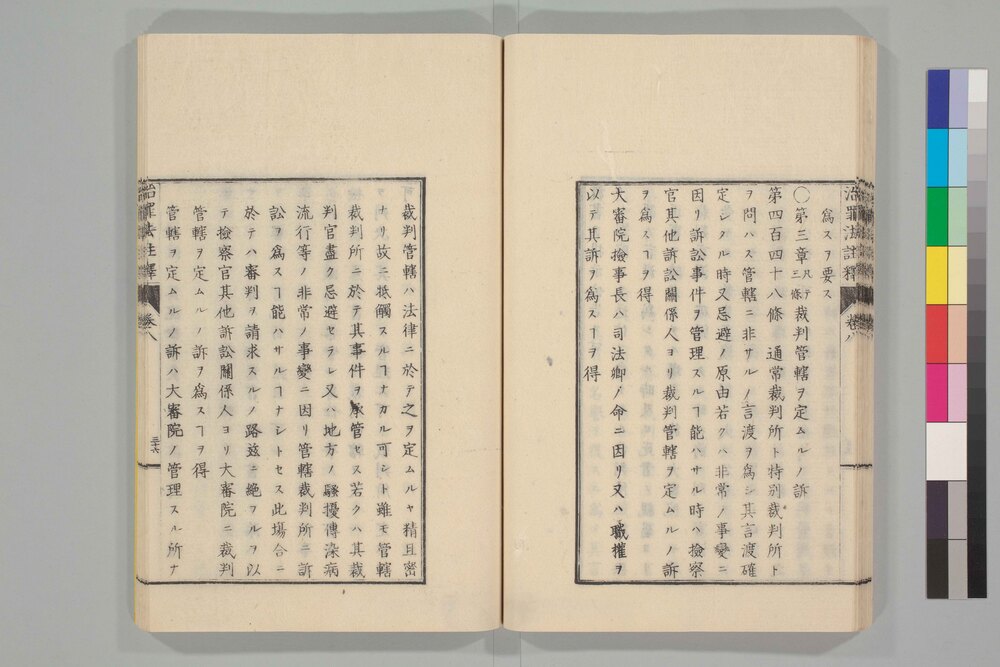 治罪法註釋 卷八
爲スヲ要ス
〇第三章 凡テ三條 裁判管轄ヲ定ムルノ訴
第四百四十八條 通常裁判所ト特別裁判所ト
ヲ問ハス管轄ニ非サルノ言渡ヲ爲シ其言渡確
定シタル時又忌避ノ原由若クハ非常ノ事變ニ
因リ訴訟事件ヲ管理スルヿ能ハサル時ハ撿察
官其他訴訟關係人ヨリ裁判管轄ヲ定ムルノ訴
ヲ爲スヿヲ得
大審院撿事長ハ司法卿ノ命ニ因リ又ハ職權ヲ
以テ其訴ヲ爲スヿヲ得
裁判管轄ハ法律ニ於テ之ヲ定ムルヤ精且密
ナリ故ニ抵觸スルヿナカル可シト雖モ管轄
裁判所ニ於テ其事件ヲ承管セス若クハ其裁
判官盡ク忌避セラレ又ハ地方ノ騷擾傳染病
流行等ノ非常ノ事變ニ因リ管轄裁判所ニ訴
訟ヲ爲スヿ能ハサルヿナシトセス此場合ニ
於テハ審判ヲ請求スルノ路兹ニ絶フルヲ以
テ撿察官其他訴訟關係人ヨリ大審院ニ裁判
管轄ヲ定ムルノ訴ヲ爲スヿヲ得
管轄ヲ定ムルノ訴ハ大審院ノ管理スル所ナ
治罪法註釋 卷八 三十六